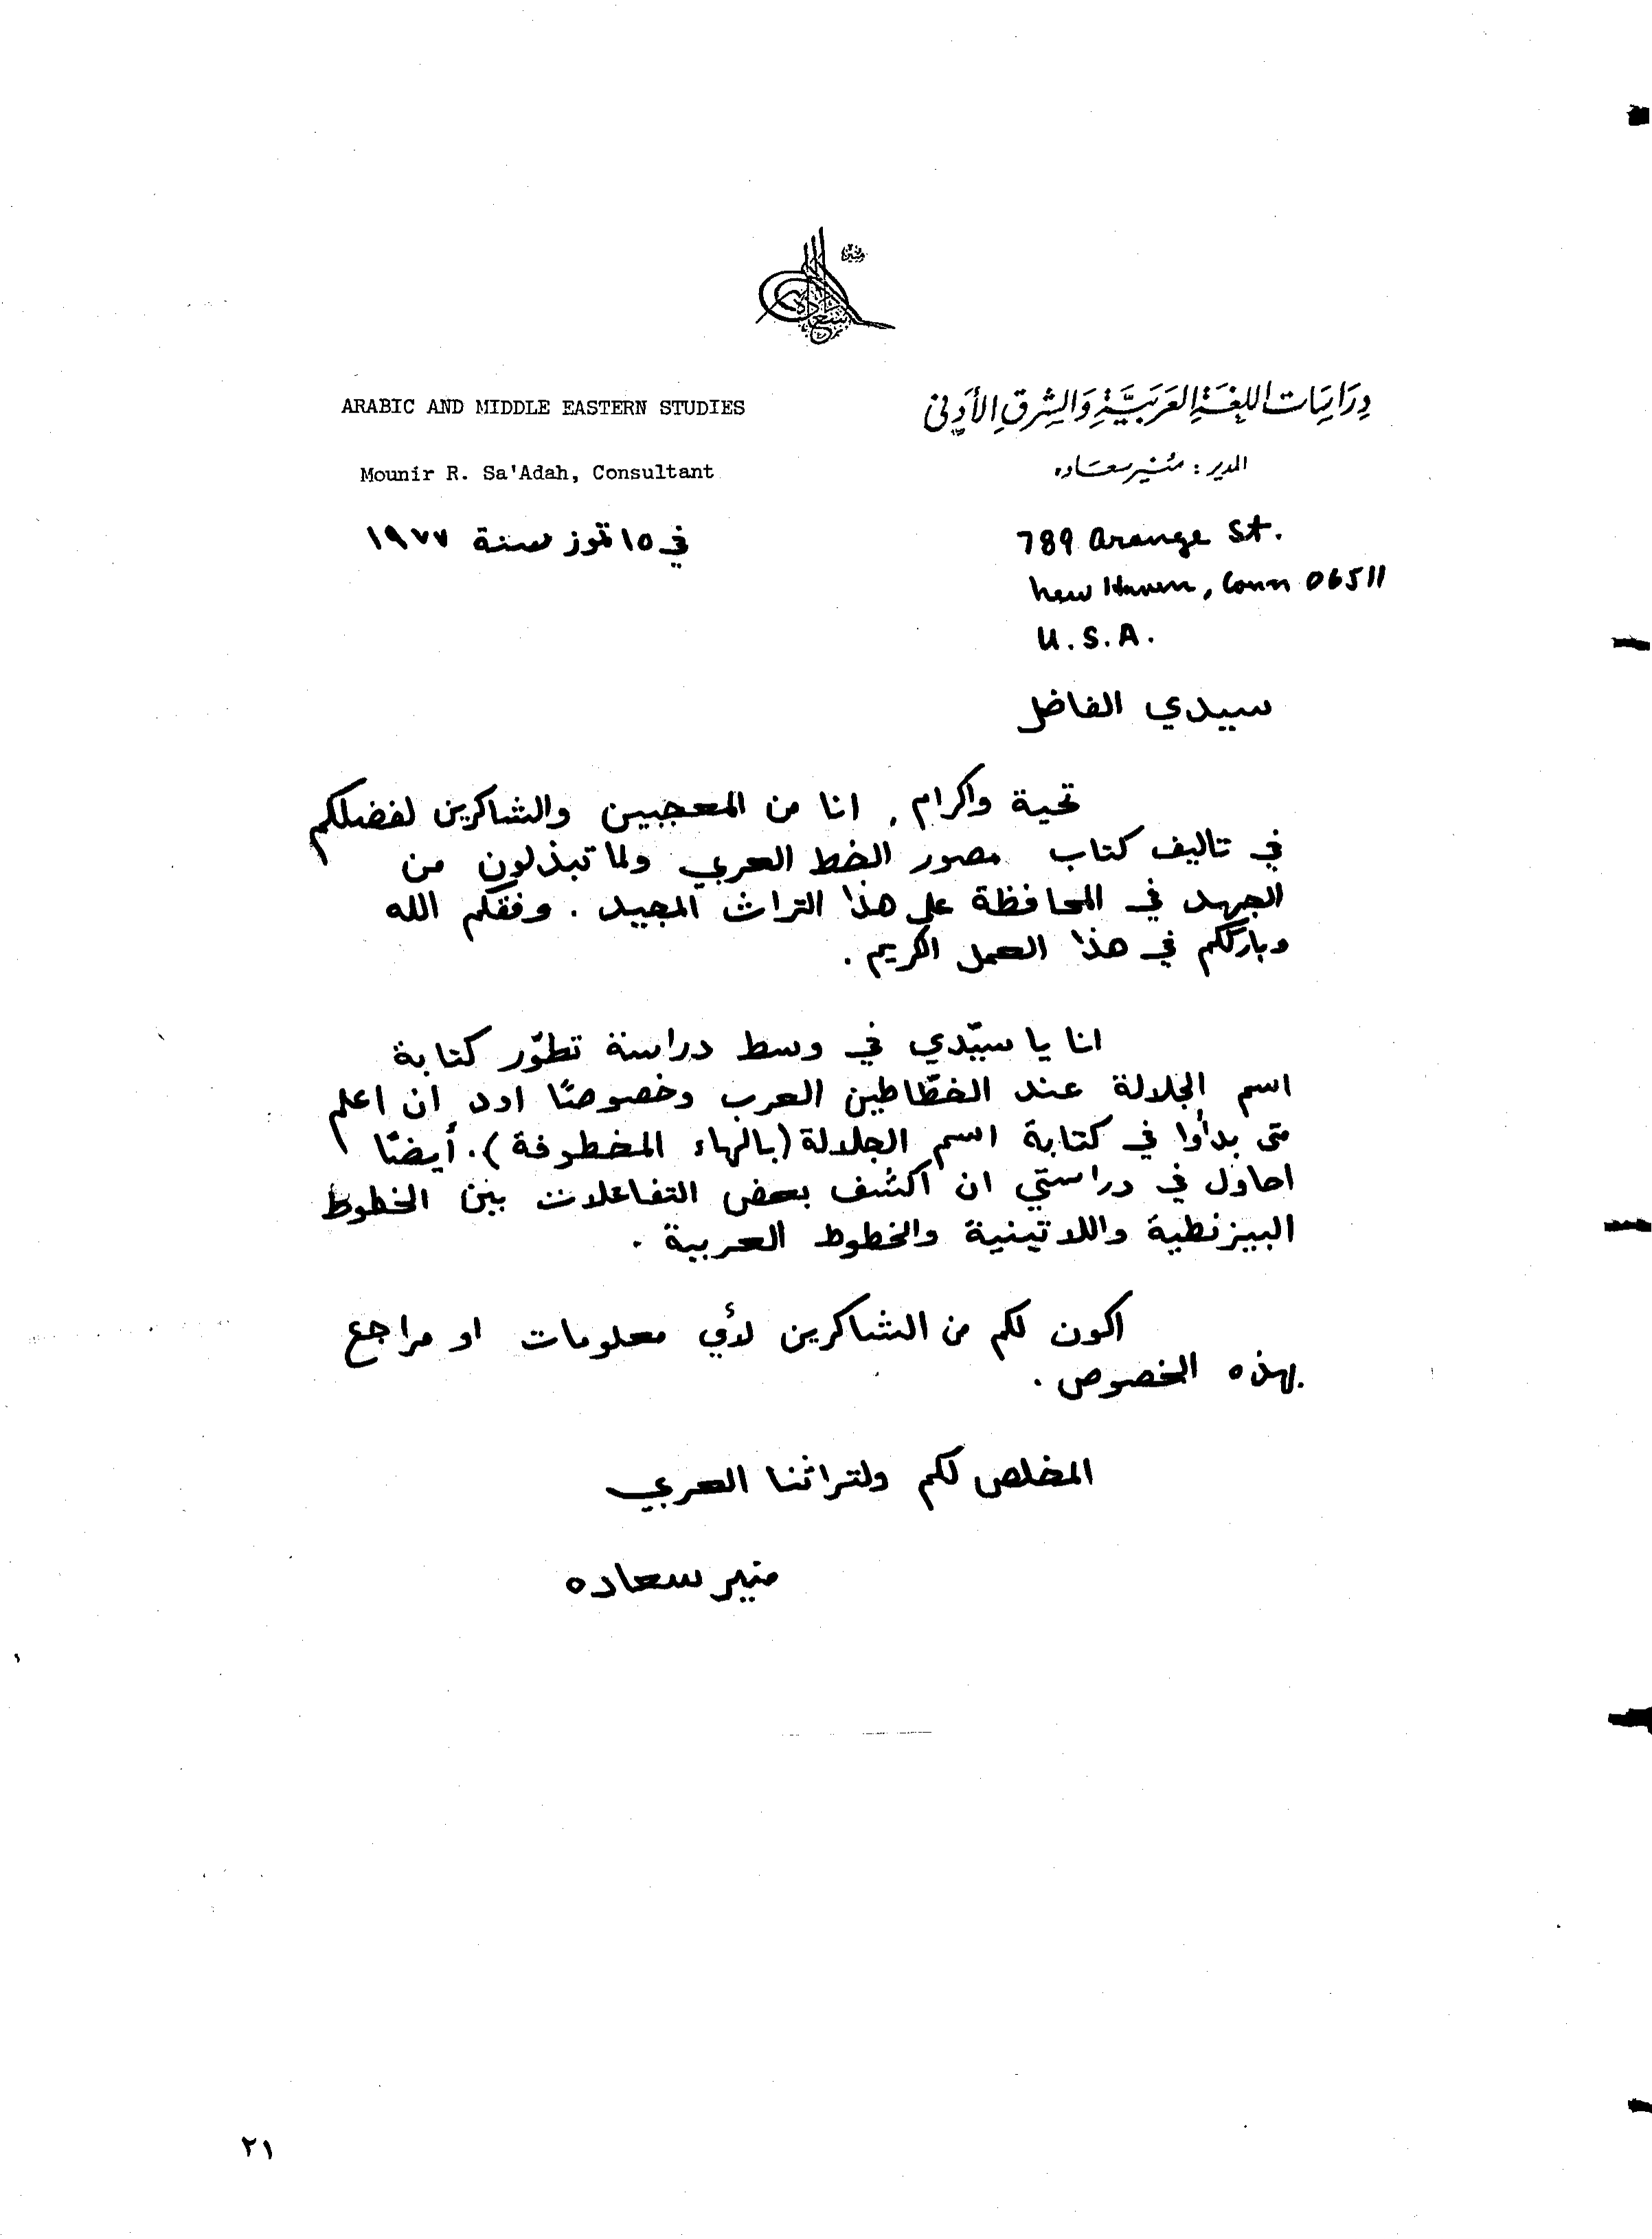 ARABIC AND MIDDLE EASTERN STUDIES
دِرَاسَات اللغَةِ العَرَبيَّةِ وَالشرقِ الأدنى
Mounir R. Sa'Adah, Consultant
المدير : منير سعاده
في ١٥ تموز سنة ١٩٧٧
789 Orange St.
New Haven, Conn 06511
U.S.A.
سيدي الفاضل
تحية واكرام . انا من المعجبين والشاكرين لفضلكم
في تاليف كتاب مصور الخط العربي ولما تبذلون من
الجهد في المحافظة على هذا التراث المجيد . وفقكم الله
وبارككم في هذا العمل الكريم .
انا يا سيّدي في وسط دراسة تطوّر كتابة
اسم الجلالة عند الخطّاطين العرب وخصوصًا اود ان اعلم
متى بدأوا في كتابة اسم الجلالة (بالهاء المخطوفة) . أيضًا
احاول في دراستي ان اكشف بعض التفاعلات بين الخطوط
البيزنطية واللاتينية والخطوط العربية .
اكون لكم من الشاكرين لأي معلومات او مراجع
بهذه الخصوص .
المخلص لكم ولتراثنا العربي
منير سعاده
٢١